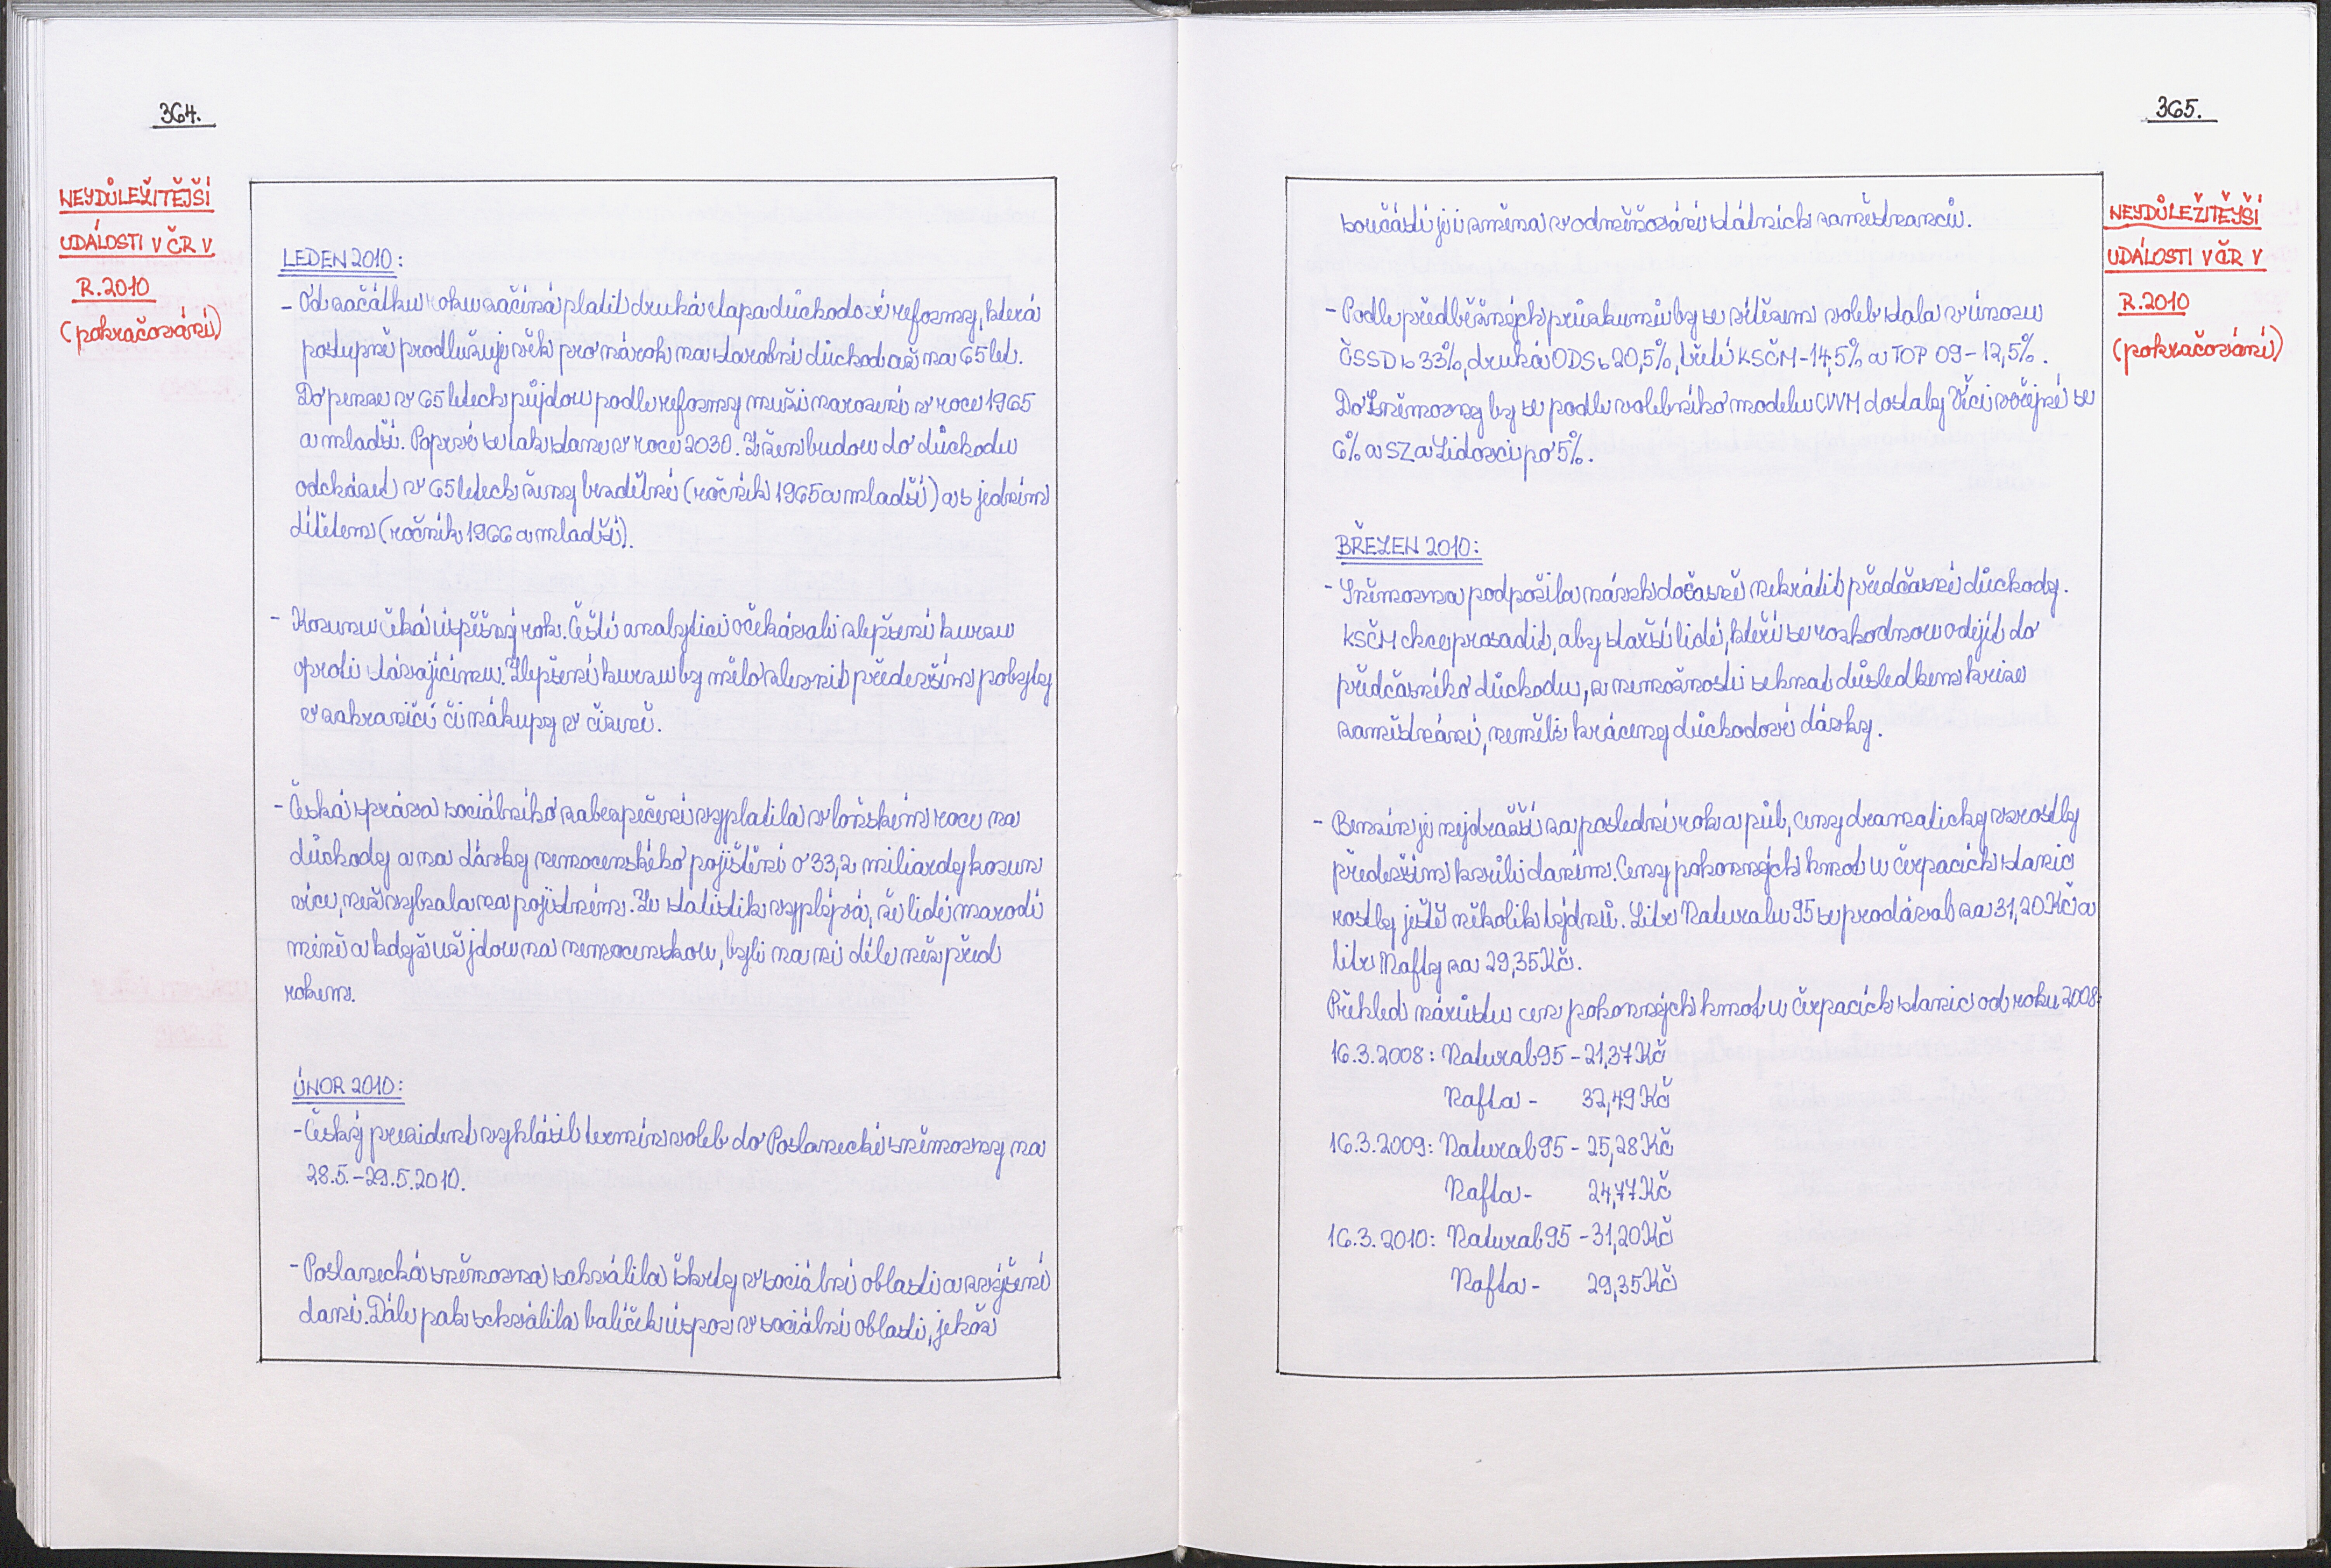 364.
NEJDŮLEŽITĚJŠÍ
UDÁLOSTI V ČR V
R. 2010
(pokračování)
LEDEN 2010:
- Od začátku roku začíná platit druhá etapa důchodové reformy, která
postupně prodlužuje věk pro nárok na starobní důchod až na 65 let.
Do penze v 65 letech půjdou podle reformy muži narození v roce 1965
a mladší. Poprvé se tak stane v roce 2030. Z žen budou do důchodu
odcházet v 65 letech ženy bezdětné (ročník 1965 a mladší) a s jedním
dítětem (ročník 1966 a mladší).
- Korunu čeká úspěšný rok. Čeští analytici očekávali zlepšení kurzu
oproti stávajícímu. Zlepšení kurzu by mělo zlevnit především pobyty
v zahraničí či nákupy v cizině.
- Česká správa sociálního zabezpečení vyplatila v loňském roce na
důchody a na dávky nemocenského pojištění o 33,2 miliardy korun
více, než vybrala na pojistném. Ze statistik vyplývá, že lidé marodí
méně a když už jdou na nemocenskou, byli na ní déle než před
rokem.
ÚNOR 2010:
- Český prezident vyhlásil termín voleb do Poslanecké sněmovny na
28.5. - 29.5.2010.
- Poslanecká sněmovna schválila škrty v sociální oblasti a zvýšení
daní. Dále pak schválila balíček úspor v sociální oblasti, jehož
365.
NEJDŮLEŽITĚJŠÍ
UDÁLOSTI V ČR V
R. 2010
(pokračování)
součástí je i změna v odměňování státních zaměstnanců.
- Podle předběžných průzkumů by se vítězem voleb stala v únoru
ČSSD s 33%, druhá ODS s 20,5%, třetí KSČM - 14,5% a TOP 09 - 12,5%.
Do Sněmovny by se podle volebního modelu CVVM dostaly Věci veřejné se
6% a SZ a Lidovci po 5%.
BŘEZEN 2010:
- Sněmovna podpořila návrh dočasně nekrátit předčasné důchody.
KSČM chce prosadit, aby starší lidé, kteří se rozhodnou odejít do
předčasného důchodu, z nemožnosti sehnat důsledkem krize
zaměstnání, neměli kráceny důchodové dávky.
- Benzín je nejdražší za poslední rok a půl, ceny dramaticky vzrostly
především kvůli daním. Ceny pohonných hmot u čerpacích stanic
rostly ještě několik týdnů. Litr Naturalu 95 se prodával za 31,20 Kč a
litr Nafty za 29,35 Kč.
Přehled nárůstu cen pohonných hmot u čerpacích stanic od roku 2008:
16.3.2008: Natural 95 - 21,37 Kč
Nafta - 32,49 Kč
16.3.2009: Natural 95 - 25,28 Kč
Nafta - 24,77 Kč
16.3.2010: Natural 95 - 31,20 Kč
Nafta - 29,35 Kč